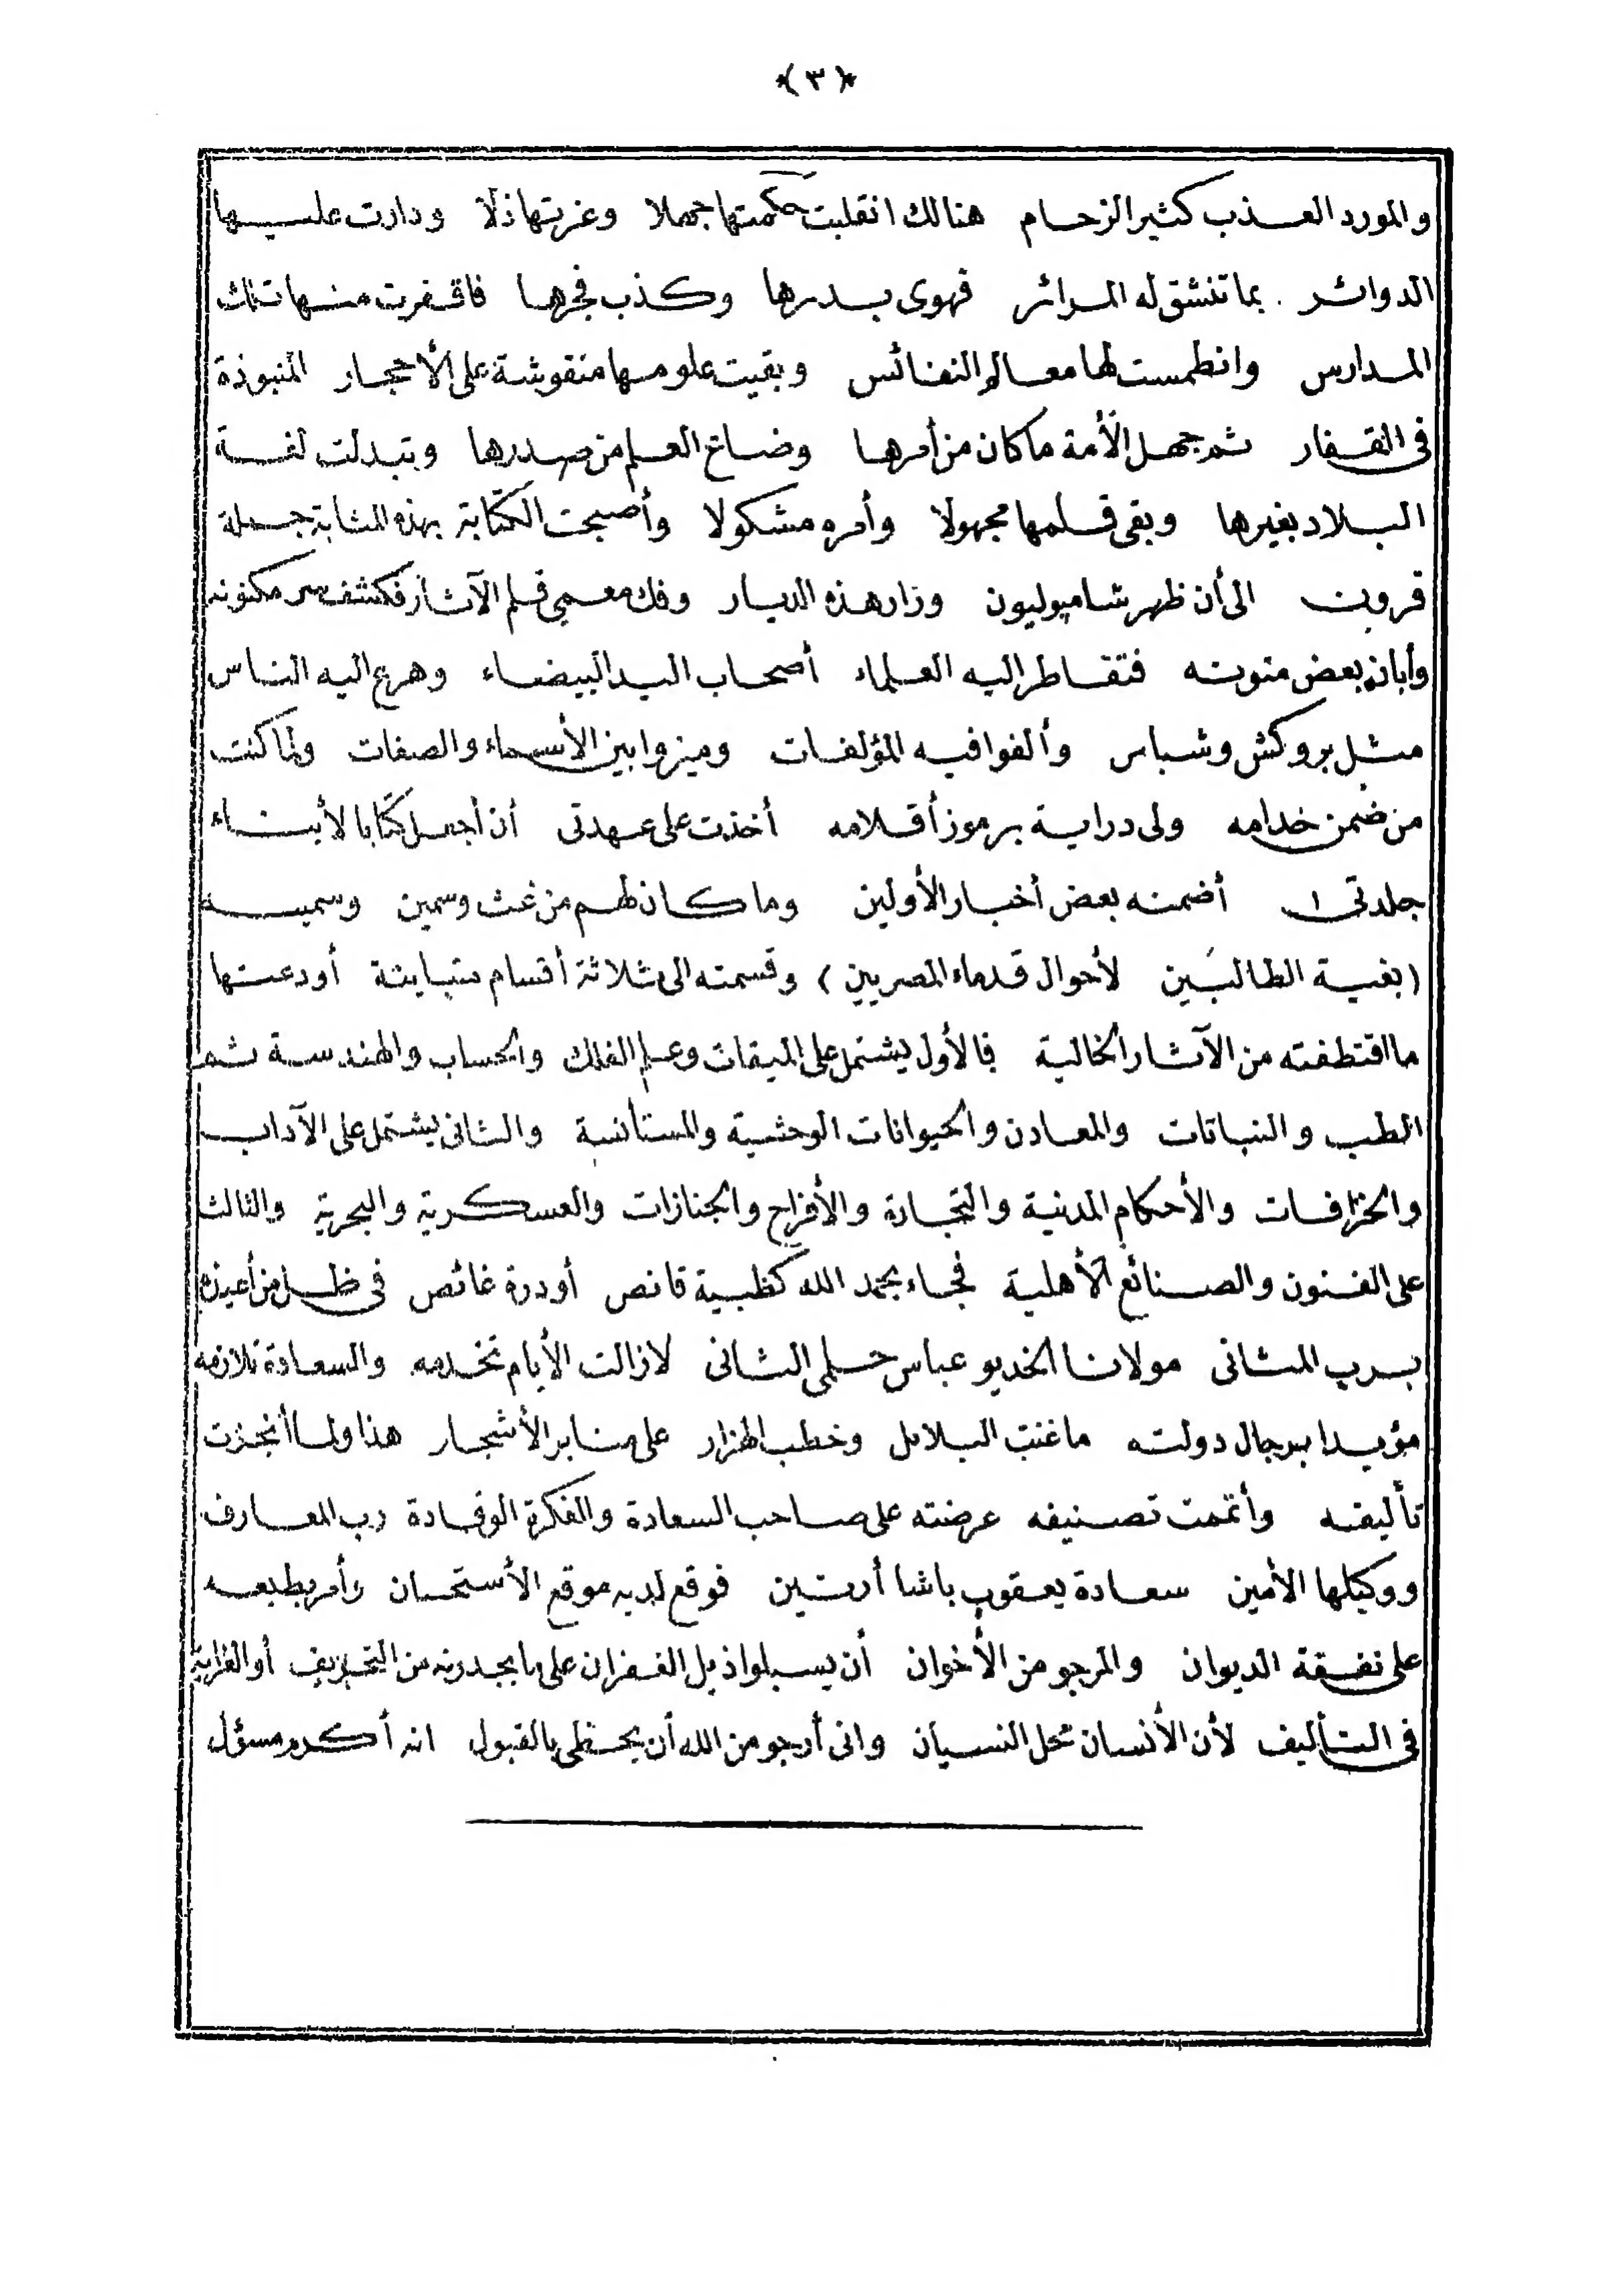 ﴿٣﴾
والمورد العذب كثير الزحام هنالك انقلبت حكمتها جهلا وعزتها ذلا ودارت عليها
الدوائر بما تنشق له المرائر فهوى بدرها وكذب فجرها فاقفرت منها تلك
المدارس وانطمست لها معالم النفائس وبقيت علومها منقوشة على الأحجار المنبوذة
فى القفار ثم جهل الأمة ما كان من أمرها وضاع العلم من صدرها وتبدلت لغة
البلاد بغيرها وبقى قلمها مجهولا وأمره مشكولا وأصبحت الكتابة بهذه المثابة جملة
قرون الى أن ظهر شامپوليون وزار هذه الديار وفك معمى قلم الآثار فكشف سر مكنونه
وأبان بعض متونه فتقاطر إليه العلماء أصحاب اليد البيضاء وهرع اليه الناس
مثل بروكش وشباس وألفوا فيه المؤلفات وميزوا بين الأسماء والصفات ولما كنت
من ضمن خدامه ولى دراية برموز أقلامه أخذت على عهدتى أن أجعل كتابا لأبناء
جلدتى أضمنه بعض أخبار الأولين وما كان لهم من غث وسمين وسميته
(بغية الطالبين لأحوال قدماء المصريين) وقسمته الى ثلاثة أقسام متباينة أودعتها
ما اقتطفته من الآثار الخالية فالأول يشتمل على الميقات وعلم الفلك والحساب والهندسة ثم
الطب والنباتات والمعادن والحيوانات الوحشية والمستأنسة والثانى يشتمل على الآداب
والخرافات والأحكام المدنية والتجارة والأفراح والجنازات والعسكرية والبحرية والثالث
على الفنون والصنائع الأهلية فجاء بحمد الله كظبية قانص أو درة غائص فى ظل من أعيذه
برب المثانى مولانا الخديو عباس حلمى الثانى لازالت الأيام تخدمه والسعادة تلازمه
مؤيدا برجال دولته ما غنت البلابل وخطب الهزار على منابر الأشجار هذا ولما أنجزت
تأليفه وأتممت تصنيفه عرضته على صاحب السعادة والفكرة الوقادة رب المعارف
ووكيلها الأمين سعادة يعقوب باشا أرتين فوقع لديه موقع الأستحسان وأمر بطبعه
على نفقة الديوان والمرجو من الأخوان أن يسبلوا ذيل الغفران على ما يجدونه من التحريف أو الغرابة
فى التأليف لأن الأنسان محل النسيان وانى أرجو من الله أن يحظى بالقبول انه أكرم مسؤل